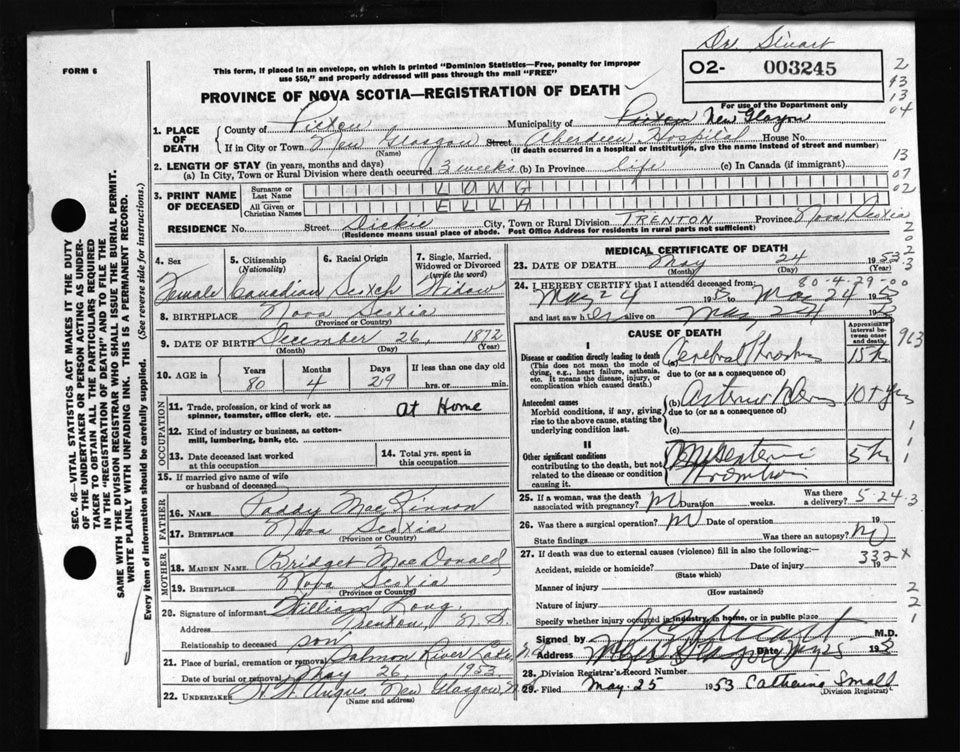 Dr. Stuart
FORM 6
This form, if placed in an envelope, on which is printed "Dominion Statistics—Free, penalty for improper
use $50," and properly addressed will pass through the mail "FREE"
O2- 003245
PROVINCE OF NOVA SCOTIA—REGISTRATION OF DEATH
For use of the Department only
2
93
13
04
13
07
02
1. PLACE OF DEATH
County of Pictou Municipality of Pictou New Glasgow
If in City or Town New Glasgow Street Aberdeen Hospital House No.
(Name) (If death occurred in a hospital or institution, give the name instead of street and number)
2. LENGTH OF STAY (in years, months and days)
(a) In City, Town or Rural Division where death occurred 3 weeks (b) In Province life (c) In Canada (if immigrant)
3. PRINT NAME OF DECEASED
Surname or Last Name LONG
All Given or Christian Names ELLA
RESIDENCE No. Street Dickie City, Town or Rural Division TRENTON Province Nova Scotia
(Residence means usual place of abode. Post Office Address for residents in rural parts not sufficient)
SEC. 46—VITAL STATISTICS ACT MAKES IT THE DUTY
OF THE UNDERTAKER OR PERSON ACTING AS UNDER-
TAKER TO OBTAIN ALL THE PARTICULARS REQUIRED
IN THE "REGISTRATION OF DEATH" AND TO FILE THE
SAME WITH THE DIVISION REGISTRAR WHO SHALL ISSUE THE BURIAL PERMIT.
WRITE PLAINLY WITH UNFADING INK. THIS IS A PERMANENT RECORD.
Every item of information should be carefully supplied. (See reverse side for instructions.)
4. Sex Female
5. Citizenship (Nationality) Canadian
6. Racial Origin Scotch
7. Single, Married, Widowed or Divorced (write the word) Widow
8. BIRTHPLACE Nova Scotia
(Province or Country)
9. DATE OF BIRTH December 26, 1872
(Month) (Day) (Year)
10. AGE Years 80 Months 4 Days 29 If less than one day old hrs. or min.
OCCUPATION
11. Trade, profession, or kind of work as
spinner, teamster, office clerk, etc. At Home
12. Kind of industry or business, as cotton-
mill, lumbering, bank, etc.
13. Date deceased last worked
at this occupation
14. Total yrs. spent in
this occupation
15. If married give name of wife
or husband of deceased
FATHER
16. NAME Paddy MacKinnon
17. BIRTHPLACE Nova Scotia
(Province or Country)
MOTHER
18. MAIDEN NAME Bridget MacDonald
19. BIRTHPLACE Nova Scotia
(Province or Country)
20. Signature of informant William Long
Address Trenton, N.S.
Relationship to deceased son
21. Place of burial, cremation or removal Salmon River Lake, N.S.
Date of burial or removal May 26, 1953
22. UNDERTAKER Angus New Glasgow
(Name and address)
MEDICAL CERTIFICATE OF DEATH
23. DATE OF DEATH May 24 1953
(Month) (Day) (Year)
80-4-29-00
24. I HEREBY CERTIFY that I attended deceased from:
May 24 1953 to May 24 1953
and last saw her alive on May 24 1953
CAUSE OF DEATH
Approximate interval between onset and death
963
I
Disease or condition directly leading to death
(This does not mean the mode of
dying, e.g., heart failure, asthenia,
etc. It means the disease, injury, or
complication which caused death.)
(a) Cerebral
due to (or as a consequence of)
Antecedent causes
Morbid conditions, if any, giving
rise to the above cause, stating the
underlying condition last.
(b) 10+ yrs
due to (or as a consequence of)
(c)
II
Other significant conditions
contributing to the death, but not
related to the disease or condition
causing it.
Mesenteric
25. If a woman, was the death
associated with pregnancy? Duration weeks. Was there a delivery?
5 24 3
26. Was there a surgical operation? Date of operation 19
State findings Was there an autopsy?
27. If death was due to external causes (violence) fill in also the following:—
332 x
Accident, suicide or homicide? Date of injury 19
(State which)
Manner of injury
(How sustained)
Nature of injury
Specify whether injury occurred in industry, in home, or in public place
Signed by M.D.
Address Date May 25 1953
28. Division Registrar's Record Number
29. Filed May 25 1953 Catherine Small
(Division Registrar)